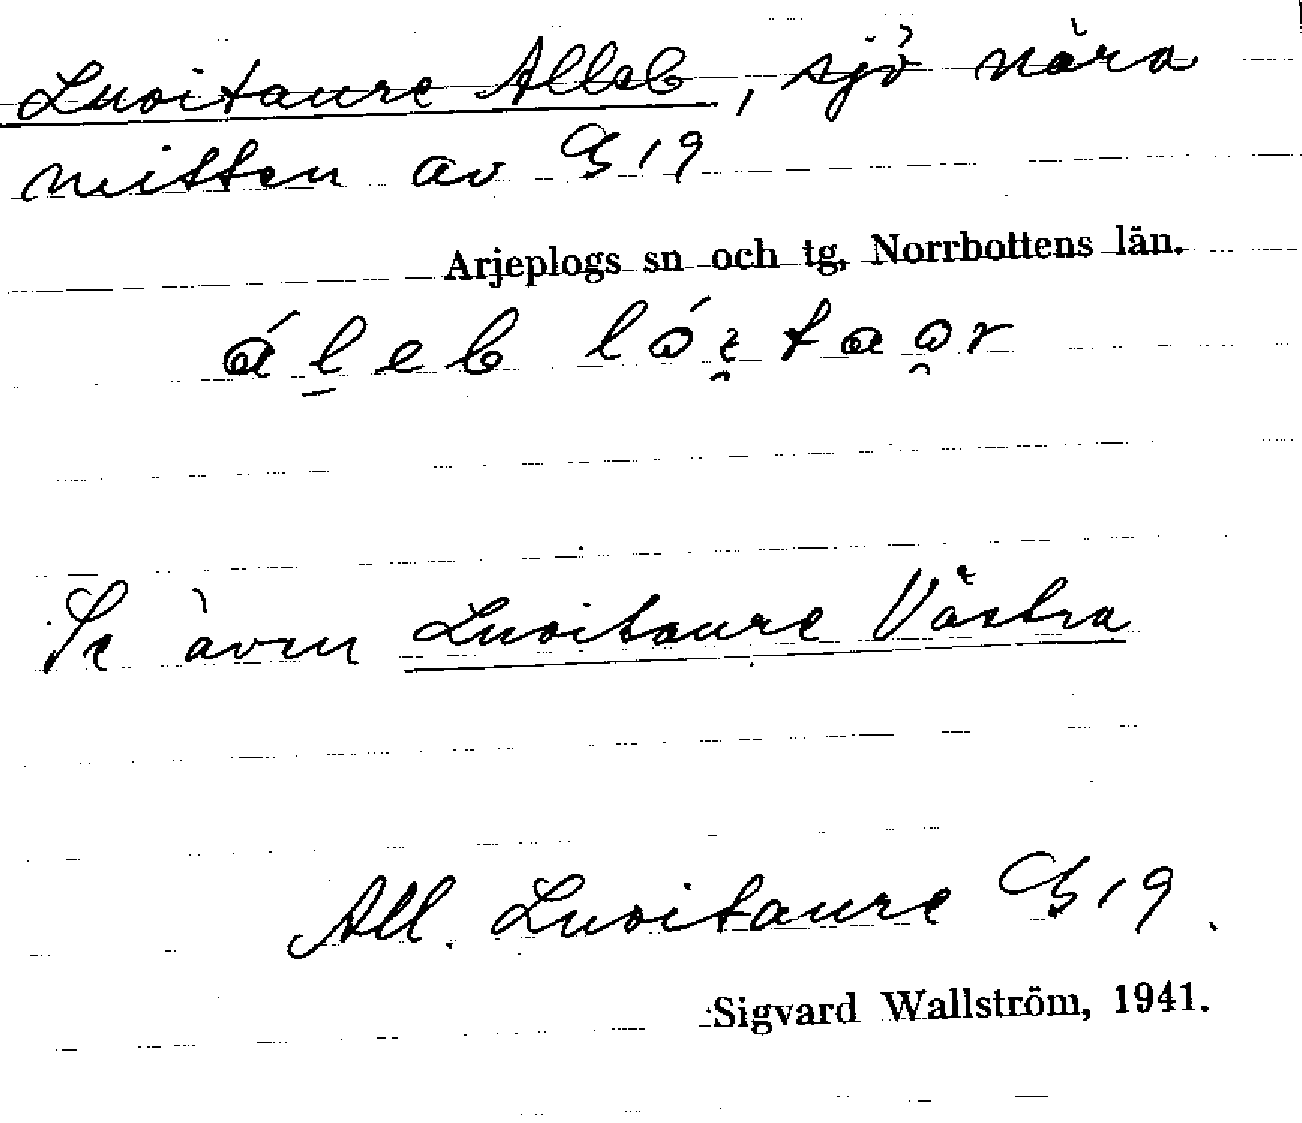 Luoitaure Alleb, sjö nära
mitten av G 19
Arjeplogs sn och tg, Norrbottens län.
á l̲ e b l ó i̯ t a o̯ r
Se även Luoitaure Västra
All. Luoitaure G 19.
Sigvard Wallström, 1941.